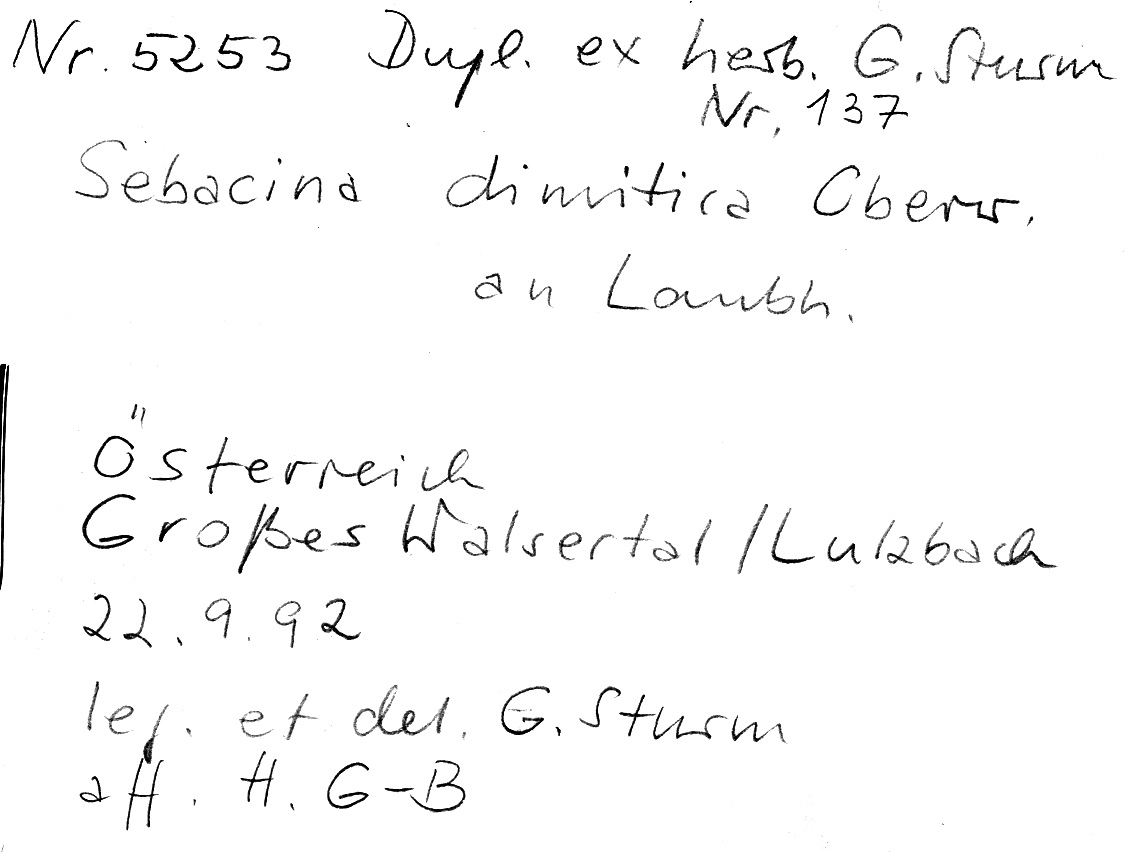 Nr. 5253 Dupl. ex herb. G. Sturm
Nr. 137
Sebacina dimitica Oberw.
an Laubh.
Österreich
Großes Walsertal / Lutzbach
22.9.92
leg. et det. G. Sturm
aff. H. G-B